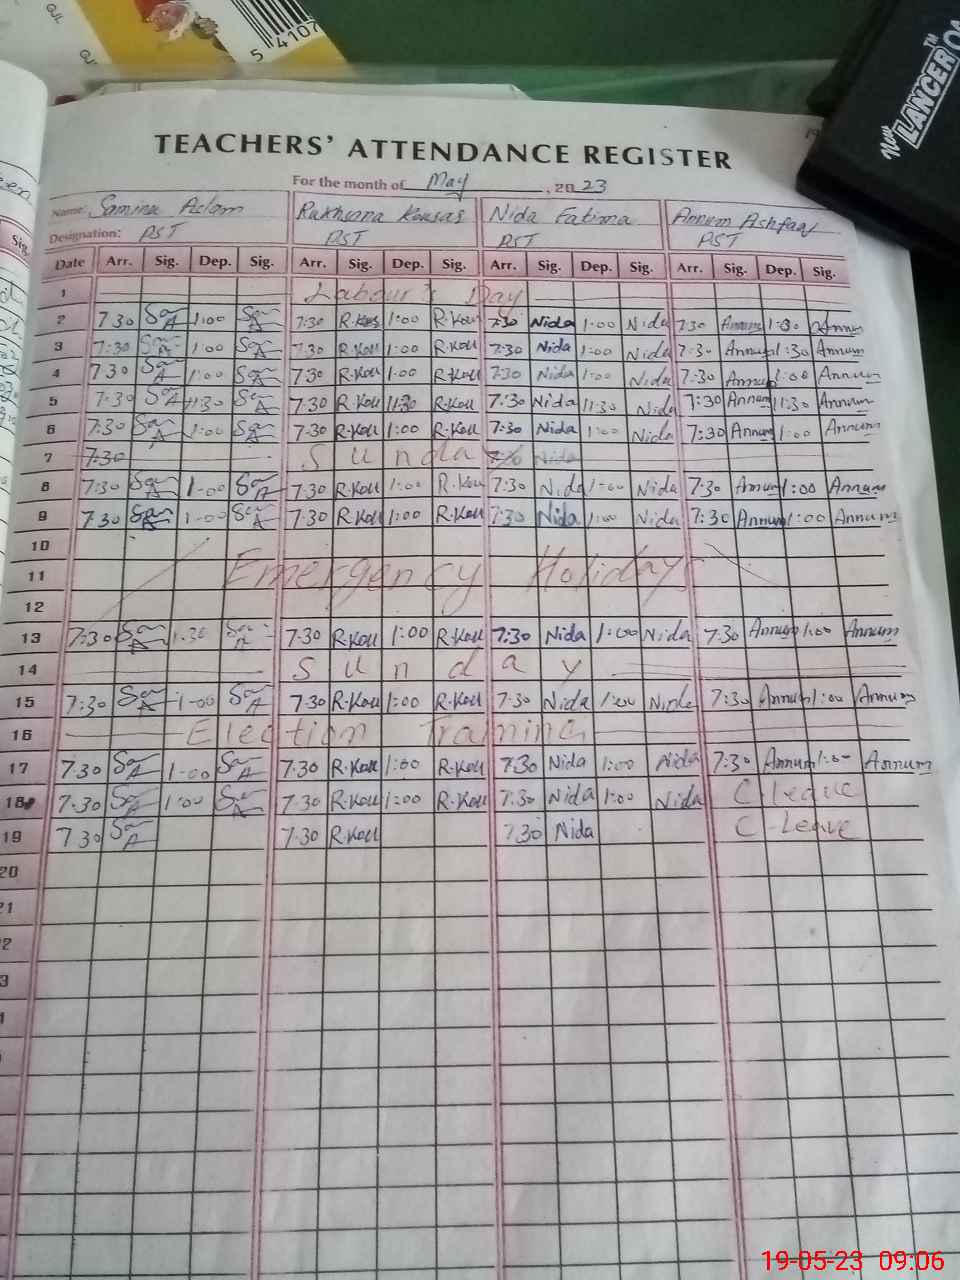 GJL
5 4107
New LANCER™ 0A
een
Sig.
TEACHERS' ATTENDANCE REGISTER
For the month of May, 2023
Name: Samina Aslam Rukhsana Kousar Nida Fatima Annum Ashfaq
Designation: PST PST PST PST
Date Arr. Sig. Dep. Sig. Arr. Sig. Dep. Sig. Arr. Sig. Dep. Sig. Arr. Sig. Dep. Sig.
1 Labour's Day
2 7:30 1:00 7:30 R.Kou 1:00 R.Kou 7:30 Nida 1:00 Nida 7:30 Annum 1:30 Annum
3 7:30 1:00 7:30 R.Kou 1:00 R.Kou 7:30 Nida 1:00 Nida 7:30 Annum 1:30 Annum
4 7:30 1:00 7:30 R.Kou 1:00 R.Kou 7:30 Nida 1:00 Nida 7:30 Annum 1:00 Annum
5 7:30 11:30 7:30 R.Kou 11:30 R.Kou 7:30 Nida 11:30 Nida 7:30 Annum 11:30 Annum
6 7:30 1:00 7:30 R.Kou 1:00 R.Kou 7:30 Nida 1:00 Nida 7:30 Annum 1:00 Annum
7 7:30 Sunda 7:30 Nida
8 7:30 1-00 7:30 R.Kou 1:00 R.Kou 7:30 Nida 1:00 Nida 7:30 Annum 1:00 Annum
9 7:30 1-00 7:30 R.Kou 1:00 R.Kou 7:30 Nida 1:00 Nida 7:30 Annum 1:00 Annum
10
11 Emergency Holidays
12
13 7:30 1:30 7:30 R.Kou 1:00 R.Kou 7:30 Nida 1:00 Nida 7:30 Annum 1:00 Annum
14 Sunday
15 7:30 1-00 7:30 R.Kou 1:00 R.Kou 7:30 Nida 1:00 Nida 7:30 Annum 1:00 Annum
16 Election Training
17 7.30 1-00 7:30 R.Kou 1:00 R.Kou 7:30 Nida 1:00 Nida 7:30 Annum 1:00 Annum
18 7.30 1:00 7:30 R.Kou 1:00 R.Kou 7:30 Nida 1:00 Nida C-leave
19 7.30 7:30 R.Kou 7:30 Nida C-Leave
20
21
2
3
19-05-23 09:06